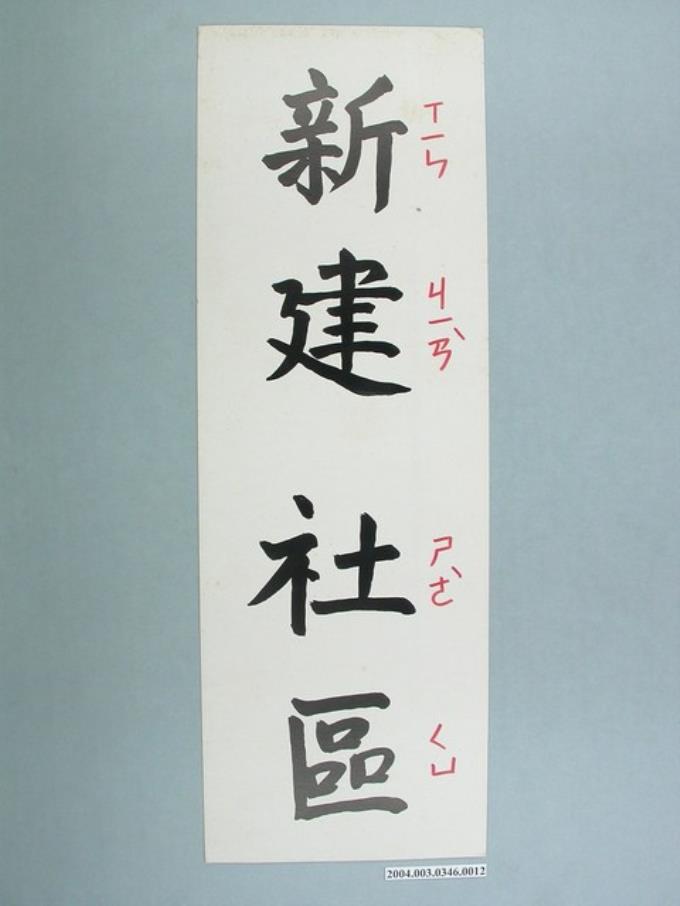 新建社區
ㄒㄧㄣ ㄐㄧㄢˋ ㄕㄜˋ ㄑㄩ
2004.003.0346.0012